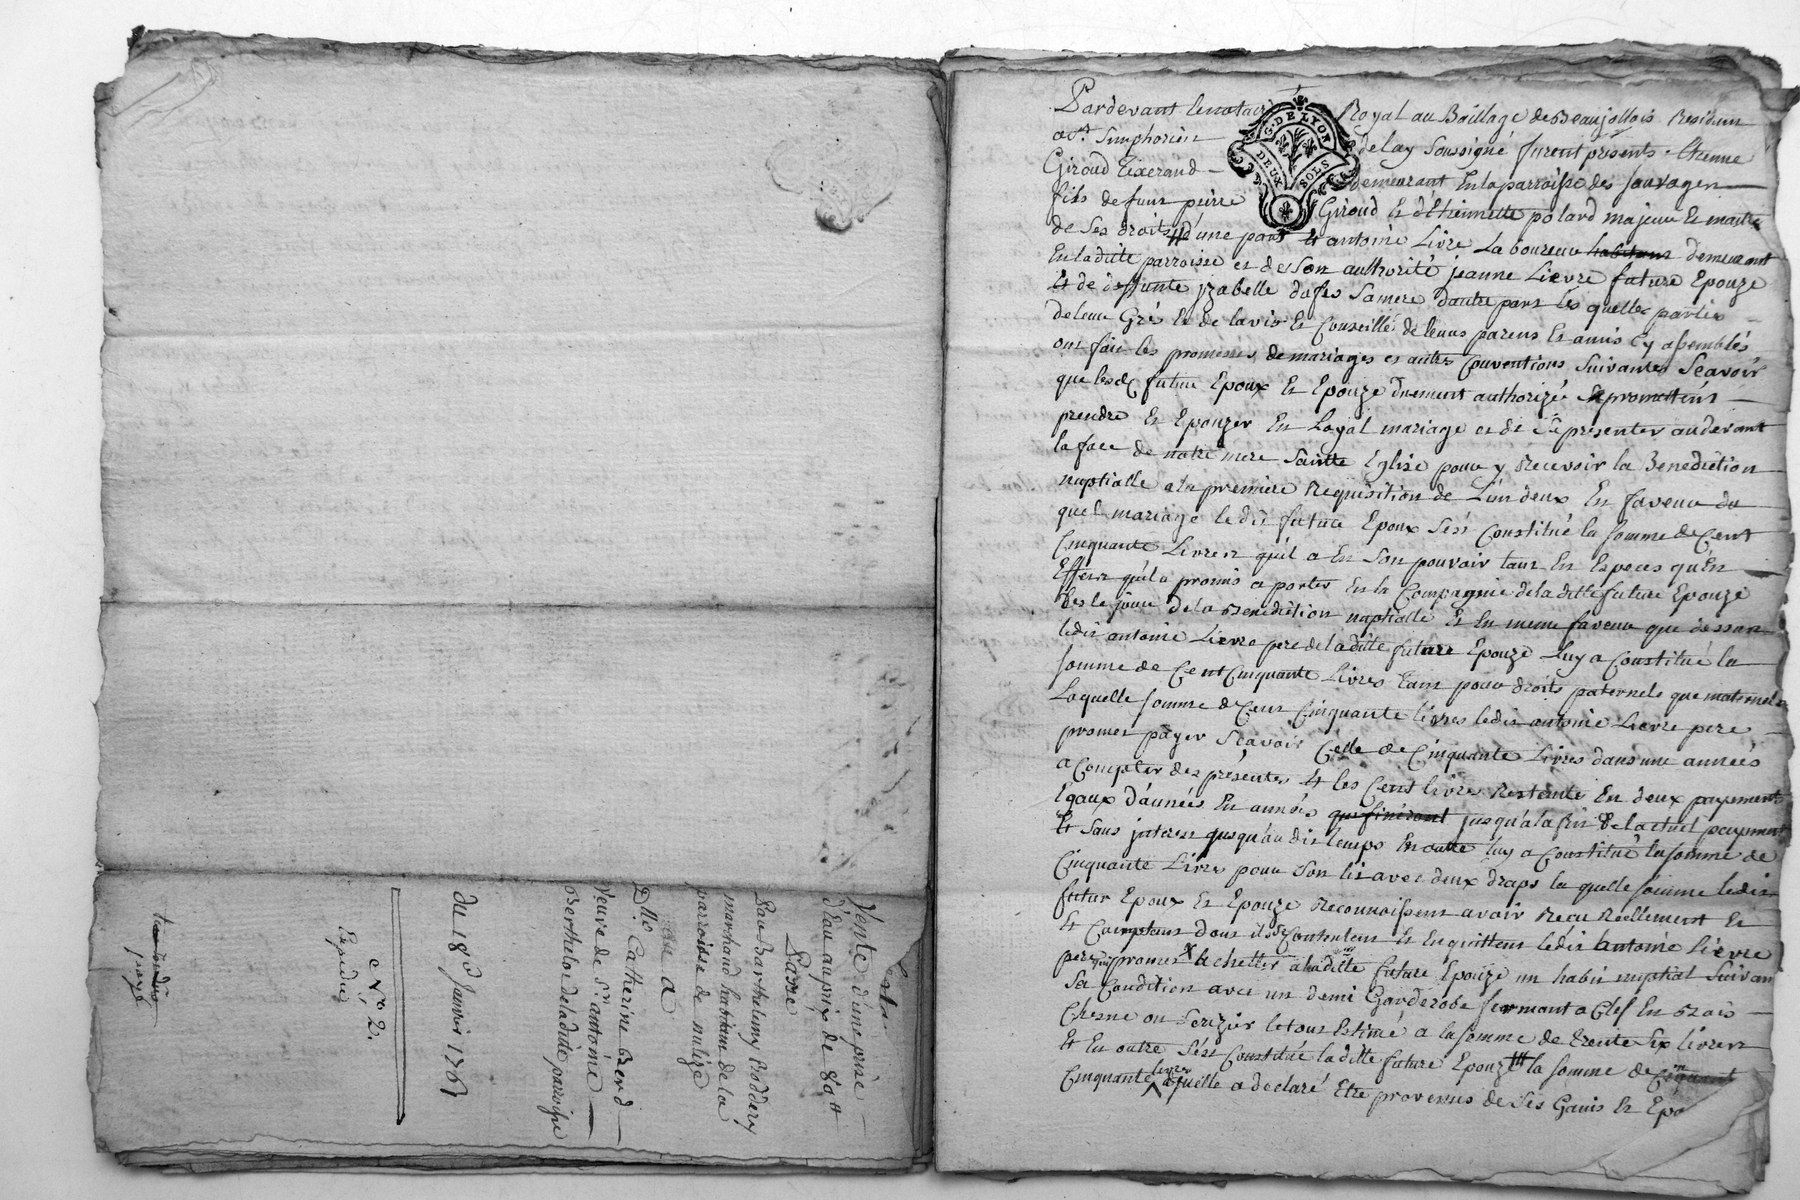 Vente d'une prise
d'eau au prix de 80#
Passé
par Barthelemy
marchand habitant de la
parroisse de
a
Dlle Catherine
veuve de Sr. antoine
Berthelot de ladide parroisse
du 18e Janvier 176
N° 2.
Expedié
Pardevant le notaire Royal au Baillage de Beaujollois Residant
a St. Simphorien de lay Soussigné furent presents Etienne
Giroud Tixerand demeurant En la parroisse des sauvages
fils de feux pierre Giroud Et d'Etiennette polard majeur Et maitre
de Ses droits d'une part Et antoine Livre Laboureur habitans demeurant
En ladite parroisse et de Son authorité jeanne Lievre future Epouze
Et de deffunte jzabelle dufis Samere dautre part les quelles parties
de leur Gré Et de lavis Et Conseillé de leurs parens Et amis Cy assemblés
ont fait les promesses de mariages et autres Conventions Suivantes Scavoir
que lesd futur Epoux Et Epouze duement authorizé Se promettent
prendre Et Epouzer En Loyal mariage et de Se presenter audevant
la face de notre mere Sainte Eglize pour y Recevoir la Benediction
nuptialle ala premiere Requisition de L'un deux En faveur du
quel mariage ledit futur Epoux Sest Constitué la somme de Cent
Cinquante Livres qu'il a En Son pouvoir tant En Especes qu'En
Effets qu'il a promis aporter En la Compagnie de laditte future Epouze
des le jour de la Benediction nuptialle Et En meme faveur que dessus
ledit antoine Lievre pere de laditte future Epouze Luy a Constitué la
somme de Cent Cinquante Livres tant pour droits paternels que maternels
Laquelle somme de Cent Cinquante livres ledit antoine Lievre pere
promet payer Scavoir Celle de Cinquante Livres dans une années
a Compter des présentes Et les Cent livres Restente En deux payements
Egaux d'années En année qui finiront jusqu'a la fin de l'actuel payement
Et Sans jnterest jusqu'au dit temps En outre luy a Constitué la somme de
Cinquante Livres pour Son lit avec deux draps la quelle somme ledit
futur Epoux Et Epouze Reconnoissent avoir Recu Réellement Et
Comptant dont ils Se Contentent Et En quittent ledit antoine Lievre
pere qui promet achetter a laditte future Epouze un habit nuptial Suivant
Sa Condition avec un demi Garderobe fermant a Clef En Bois
Chesne ou Serizier le tout Estimé a la somme de trente Six livres
Et En outre Sest Constitué laditte future Epouze la somme de
Cinquante livres aquelle a declaré Etre provenus de Ses Gains Et Epa
G. DE LYON
DEUX SOLS